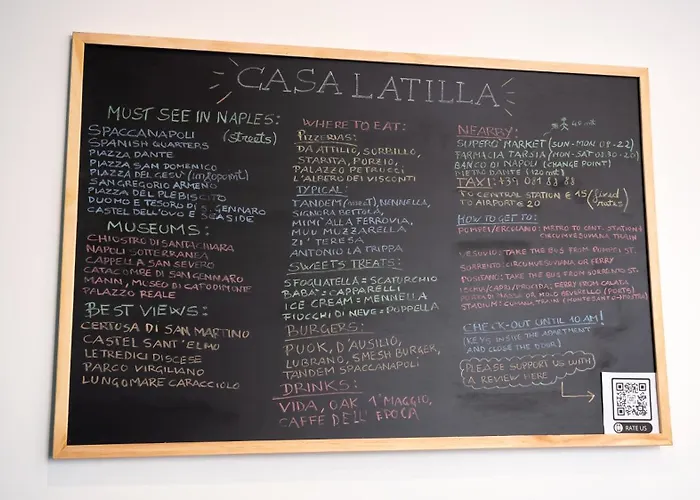 CASA LATILLA
MUST SEE IN NAPLES:
SPACCANAPOLI (streets)
SPANISH QUARTERS
PIAZZA DANTE
PIAZZA SAN DOMENICO
PIAZZA DEL GESU' (infopoint)
SAN GREGORIO ARMENO
PIAZZA DEL PLEBISCITO
DUOMO E TESORO DI S. GENNARO
CASTEL DELL'OVO E SEASIDE
MUSEUMS:
CHIOSTRO DI SANTA CHIARA
NAPOLI SOTTERRANEA
CAPPELLA SAN SEVERO
CATACOMBE DI SAN GENNARO
MANN, MUSEO DI CAPODIMONTE
PALAZZO REALE
BEST VIEWS:
CERTOSA DI SAN MARTINO
CASTEL SANT'ELMO
LE TREDICI DISCESE
PARCO VIRGILIANO
LUNGOMARE CARACCIOLO
WHERE TO EAT:
PIZZERIAS:
DA ATTILIO, SORBILLO,
STARITA, PORZIO,
PALAZZO PETRUCCI
L'ALBERO DEI VISCONTI
TYPICAL:
TANDEM (meat), NENNELLA,
SIGNORA BETTOLA,
MIMI' ALLA FERROVIA,
MUU MUZZARELLA
ZI' TERESA
ANTONIO LA TRIPPA
SWEETS TREATS:
SFOGLIATELLA = SCATURCHIO
BABA' = CAPPARELLI
ICE CREAM = MENNELLA
FIOCCHI DI NEVE = POPPELLA
BURGERS:
PUOK, D'AUSILIO,
LUBRANO, SMESH BURGER,
TANDEM SPACCANAPOLI
DRINKS:
VIDA, OAK, 1° MAGGIO,
CAFFE DELL' EPOCA
NEARBY:
SUPERO' MARKET (SUN-MON 08-22)
FARMACIA TARSIA (MON-SAT 08.30-20)
BANCO DI NAPOLI (CHANGE POINT)
METRO DANTE (120 mt)
TAXI: +39 081 88 88
TO CENTRAL STATION € 15 (fixed
TO AIRPORT € 20 rates)
HOW TO GET TO:
POMPEI/ERCOLANO: METRO TO CENT. STATION +
CIRCUMVESUVIANA TRAIN
VESUVIO: TAKE THE BUS FROM POMPEI ST.
SORRENTO: CIRCUMVESUVIANA OR FERRY
POSITANO: TAKE THE BUS FROM SORRENTO ST.
ISCHIA/CAPRI/PROCIDA: FERRY FROM CALATA
PORTA DI MASSA OR MOLO BEVERELLO (PORTS)
STADIUM: CUMANA TRAIN (MONTESANTO-MOSTRA)
CHECK-OUT UNTIL 10 AM!
(KEYS INSIDE THE APARTMENT
AND CLOSE THE DOOR)
PLEASE SUPPORT US WITH
A REVIEW HERE
RATE US